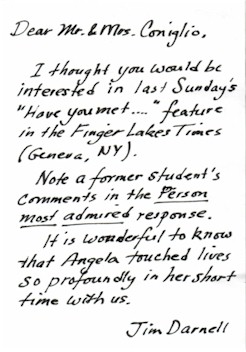 Dear Mr. & Mrs. Coniglio,
I thought you would be
interested in last Sunday's
"Have you met...." feature
in the Finger Lakes Times
(Geneva, NY).
Note a former student's
comments in the Person
most admired response.
It is wonderful to know
that Angela touched lives
so profoundly in her short
time with us.
Jim Darnell